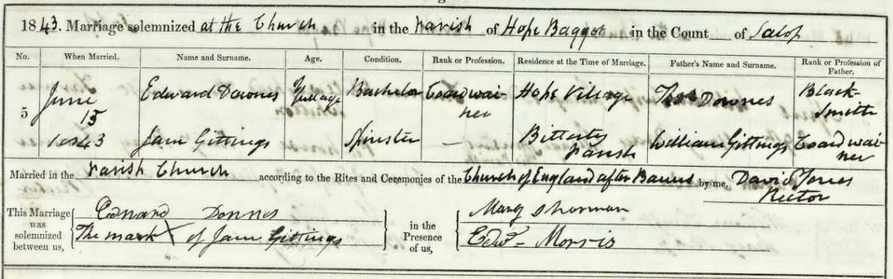 1843. Marriage solemnized at the Church in the Parish of Hope Baggot in the Count of Salop
No. When Married. Name and Surname. Age. Condition. Rank or Profession. Residence at the Time of Marriage. Father's Name and Surname. Rank or Profession of Father.
5 June 15 1843 Edward Downes Full age Bachelor Coardwainer Hope Village Thos Downes Black-Smith
Jane Gittings Spinster — Bitterley Parish William Gittings Coardwainer
Married in the Parish Church according to the Rites and Ceremonies of the Church of England after Banns by me, David Jones Rector
This Marriage was solemnized between us, Edward Downes
The mark X of Jane Gittings
in the Presence of us, Mary Sherman
Edwd Morris